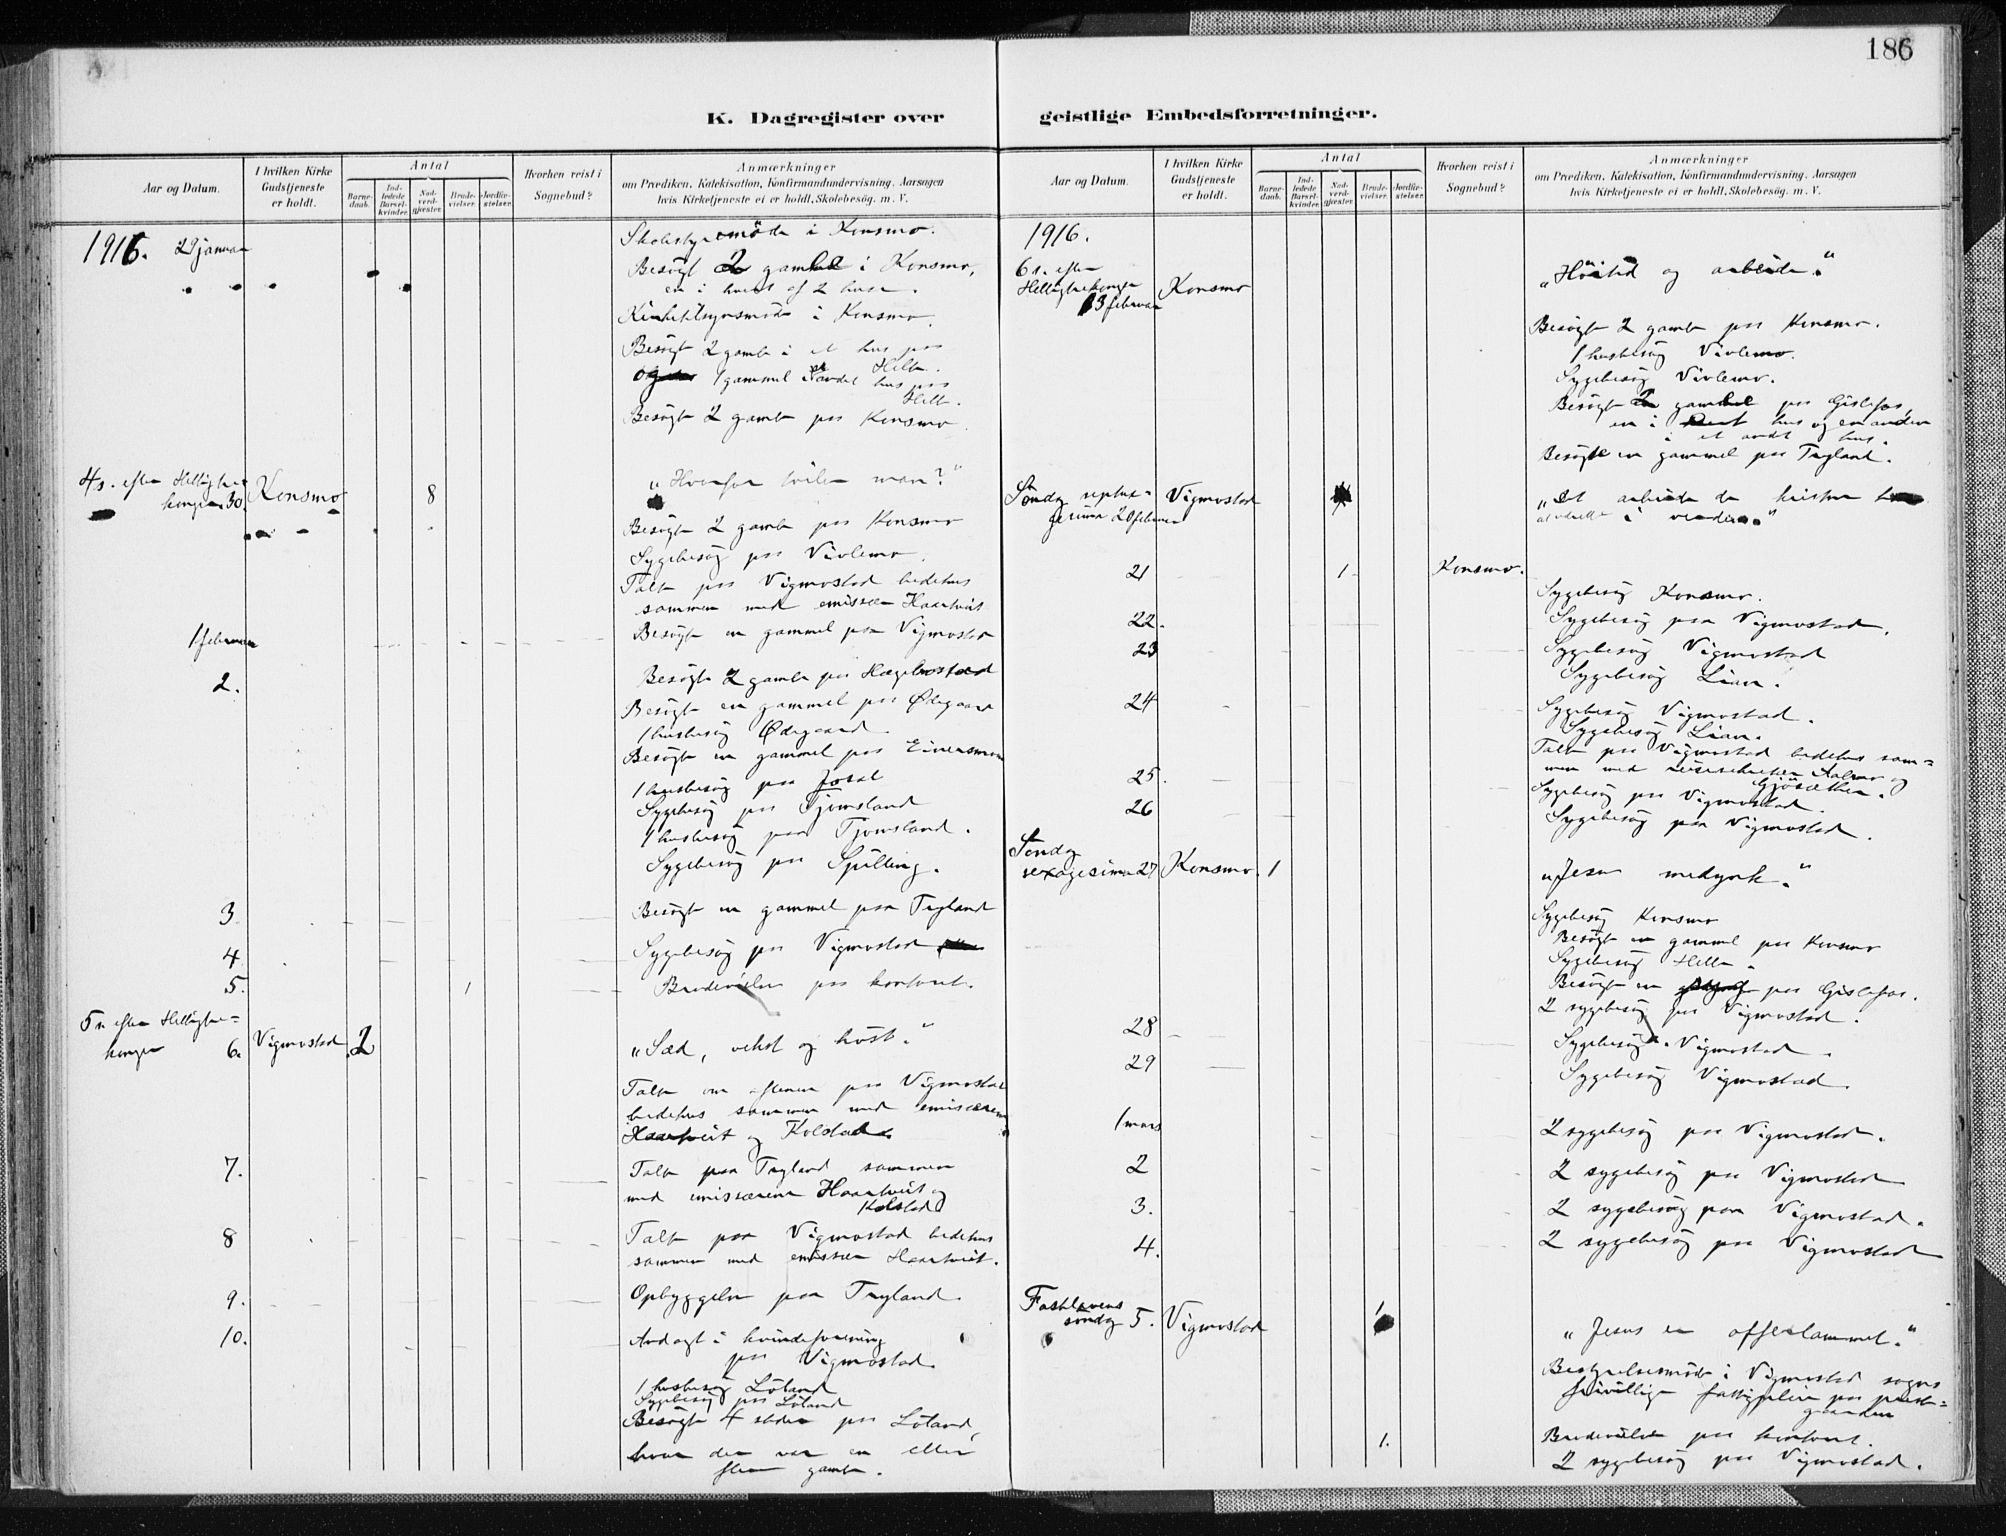 186
K. Dagregister over geistlige Embedsforretninger.
Aar og Datum.
I hvilken Kirke Gudstjeneste er holdt.
Antal
Barnedaab.
Indledede Barselkvinder.
Nadverdgjæster.
Brudevielser.
Jordfæstelser.
Hvorhen reist i Sognebud?
Anmærkninger
om Prædiken, Katekisation, Konfirmandundervisning. Aarsagen
hvis Kirketjeneste ei er holdt, Skolebesög. m. V.
1916. 29 januar
Skolestyremöde i Konsmo.
Besögt 2 gamle i Konsmo,
en i hvert af 2 huse.
Kirketilsynsmöde i Konsmo.
Besögt 2 gamle i et hus paa
Helle.
1 gammel i et andet hus paa
Helle.
Besögt 2 gamle paa Konsmo.
4 s. efter Helligtre-
konger 30. Konsmo 8
"Hvorfor tviler man?"
Besögt 2 gamle paa Konsmo
Sygebesög paa Vivlemo.
Talte paa Vigmostad bedehus
sammen med emissær Haartveit
1 februar
Besögte en gammel paa Vigmostad
2.
Besögte 2 gamle paa Hægebostad
Besögte en gammel paa Ødegaard
1 husbesög Ødegaard.
Besögte en gammel paa Eivensmoen
1 husbesög paa Josal
Sygebesög paa Tjomsland
1 husbesög paa Tjomsland.
Sygebesög paa Spilling.
3.
Besögte en gammel paa Tryland
4.
Sygebesög paa Vigmostad
5. 1
Brudevielse paa kontoret.
5 s. efter Helligtre-
konger 6. Vigmostad 2
"Sæd, vekst og höst."
Talte om aftenen paa Vigmostad
bedehus sammen med emissærerne
Haartveit og Kolstad.
7.
Talte paa Tryland sammen
med emissærerne Haartveit og
Kolstad
8
Talte paa Vigmostad bedehus
sammen med emissær Haartveit.
9.
Opbyggelse paa Tryland.
10.
Andagt i kvindeforening
paa Vigmostad.
1 husbesög Löland
Sygebesög paa Löland
Besögte 4 steder paa Löland,
hvor der var en eller
flere gamle.
Aar og Datum.
I hvilken Kirke Gudstjeneste er holdt.
Antal
Barnedaab.
Indledede Barselkvinder.
Nadverdgjæster.
Brudevielser.
Jordfæstelser.
Hvorhen reist i Sognebud?
Anmærkninger
om Prædiken, Katekisation, Konfirmandundervisning. Aarsagen
hvis Kirketjeneste ei er holdt. Skolebesög. m. V.
1916.
6 s. efter
Helligtrekonger
13 februar Konsmo
"Höitid og arbeide."
Besögte 2 gamle paa Konsmo.
1 husbesög Vivlemo.
Sygebesög Vivlemo.
Besögte 2 gamle paa Gislefos,
en i hus og en anden
i et andet hus.
Besögte en gammel paa Tryland.
Söndag septua-
gesima 20 februar Vigmostad
"Et arbeide de kristne
i verden."
21 1 Konsmo.
Sygebesög Konsmo.
22.
Sygebesög paa Vigmostad.
23
Sygebesög Vigmostad
Sygebesög Lian.
24
Sygebesög Vigmostad.
Sygebesög Lian.
Talte paa Vigmostad bedehus sam-
men med og
Gjösæther.
25.
Sygebesög paa Vigmostad
26
Sygebesög paa Vigmostad.
Söndag
sexagesima 27 Konsmo. 1
"Jesu medynk."
Sygebesög Konsmo
Besögt en gammel paa Konsmo
Sygebesög Helle.
Besögte en paa Gislefos.
2 sygebesög paa Vigmostad.
28
Sygebesög Vigmostad.
29
Sygebesög Vigmostad.
1 mars
2 sygebesög paa Vigmostad.
2
2 sygebesög paa Vigmostad
3.
2 sygebesög paa Vigmostad.
4.
2 sygebesög paa Vigmostad
Fastelavens
söndag 5. Vigmostad 1
"Jesus er offerlammet."
Bestyrelsesmöde i Vigmostad sogns
frivillige fattigpleie paa preste-
gaarden
1.
Brudevielse paa kontoret.
2 sygebesög paa Vigmostad.